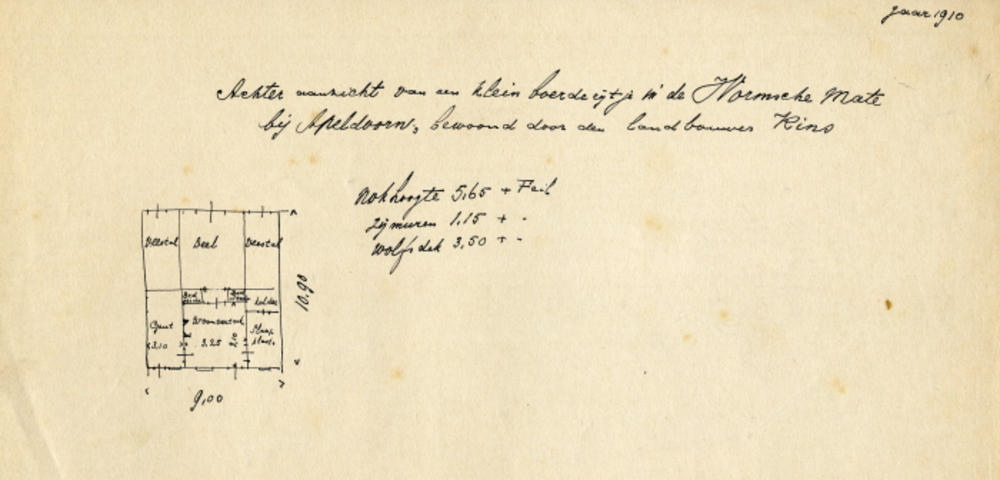 jaar 1910
Achter aanzicht van een klein boerderijtje in de Wormsche Mate
bij Apeldoorn, bewoond door den landbouwer Kins
Nokhoogte 5,65 + Peil
zijmuren 1,15 + "
wolfsdak 3,50 + "
Deel
kelder
Geut Woonvertrek Slaap
3,10 3,25
10.90
9,00